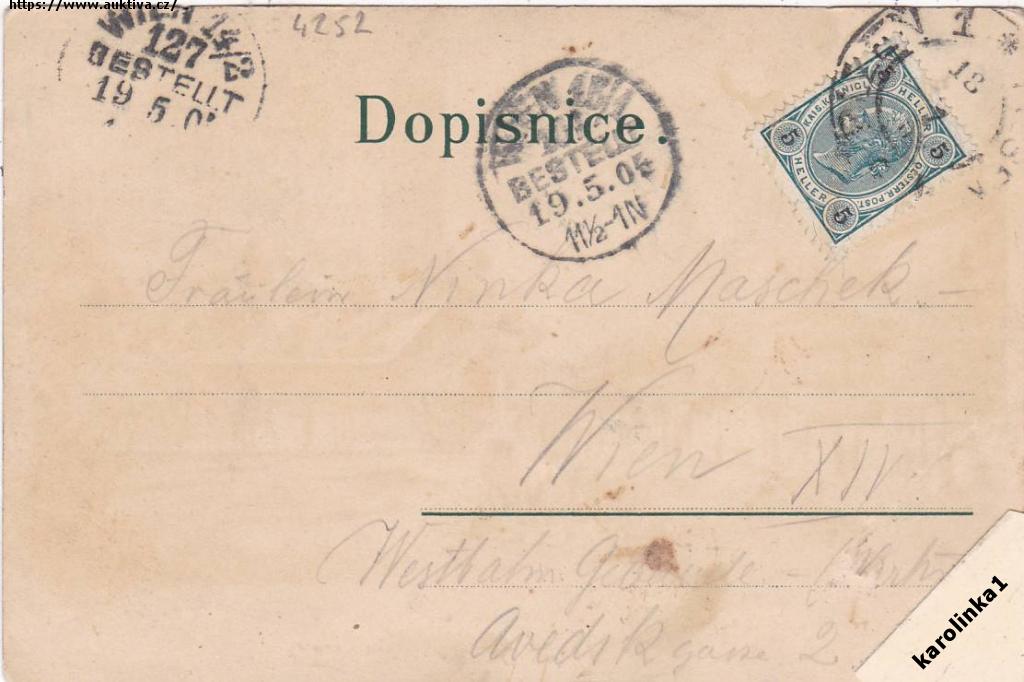 https://www.auktiva.cz/
4252
WIEN 14/2
127
BESTELLT
19 5.05
Dopisnice.
BESTELLT
19.5.05
11½-1N
1
18
KAIS. KÖNIGL. OESTERR. POST.
5 HELLER 5 HELLER 5 5
Fräulein Ninka Maschek -
Wien XIV.
Westbahn
Avedikgasse 2
karolinka1